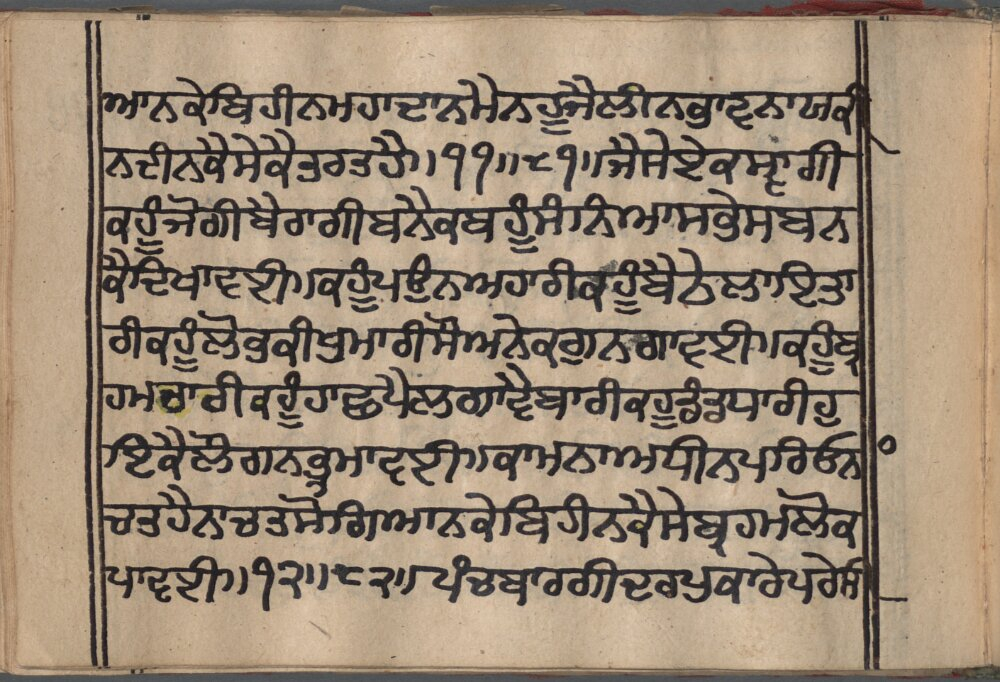 ਆਨਕੇਬਿਹੀਨਮਹਾਦਾਨਮੈਨਹੂਜੈਲੀਨਭੁਾਵਨਾਯਕੀ
ਨਦੀਨਕੈਸੇਕੈਤਰਤਹੈ॥੧੧॥੮੧॥ਜੈਸੇਏਕਸ੍ਵਾਗੀ
ਕਹੂੰਜੋਗੀਬੈਰਾਗੀਬਨੈਕਬਹੂੰਸੰਨਿਆਸਭੇਸਬਨ
ਕੈਦਿਖਾਵਈ॥ਕਹੂੰਪਉਨਅਹਾਰੀਕਹੂੰਬੈਠੇਲਾਇਤਾ
ਰੀਕਹੂੰਲੋਭਕੀਖੁਮਾਰੀਸੌਅਨੇਕਗੁਨਗਾਵਈ॥ਕਹੂੰਬ੍ਰ
ਹਮਚਾਰੀਕਹੂੰਹਾਥਪੈਲਗਾਵੈਬਾਰੀਕਹੂਡੰਡਧਾਰੀਹੁ
ਇਕੈਲੋਗਨਭ੍ਰਮਾਵਈ॥ਕਾਮਨਾਅਧੀਨਪਰਿਓਨ
ਚਤਹੈਨਾਚਤਸੋਗਿਆਨਕੇਬਿਹੀਨਕੈਸੇਬ੍ਰਹਮਲੋਕ
ਪਾਵਈ॥੧੨॥੮੨॥ਪੰਚਬਾਰਗੀਦਰਪੁਕਾਰੇਪਰੇਸੀ